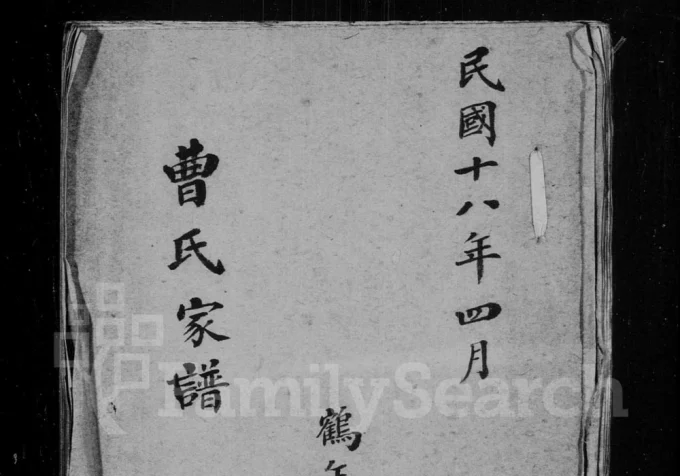 民國十八年四月
鶴年
曹氏家譜
FamilySearch